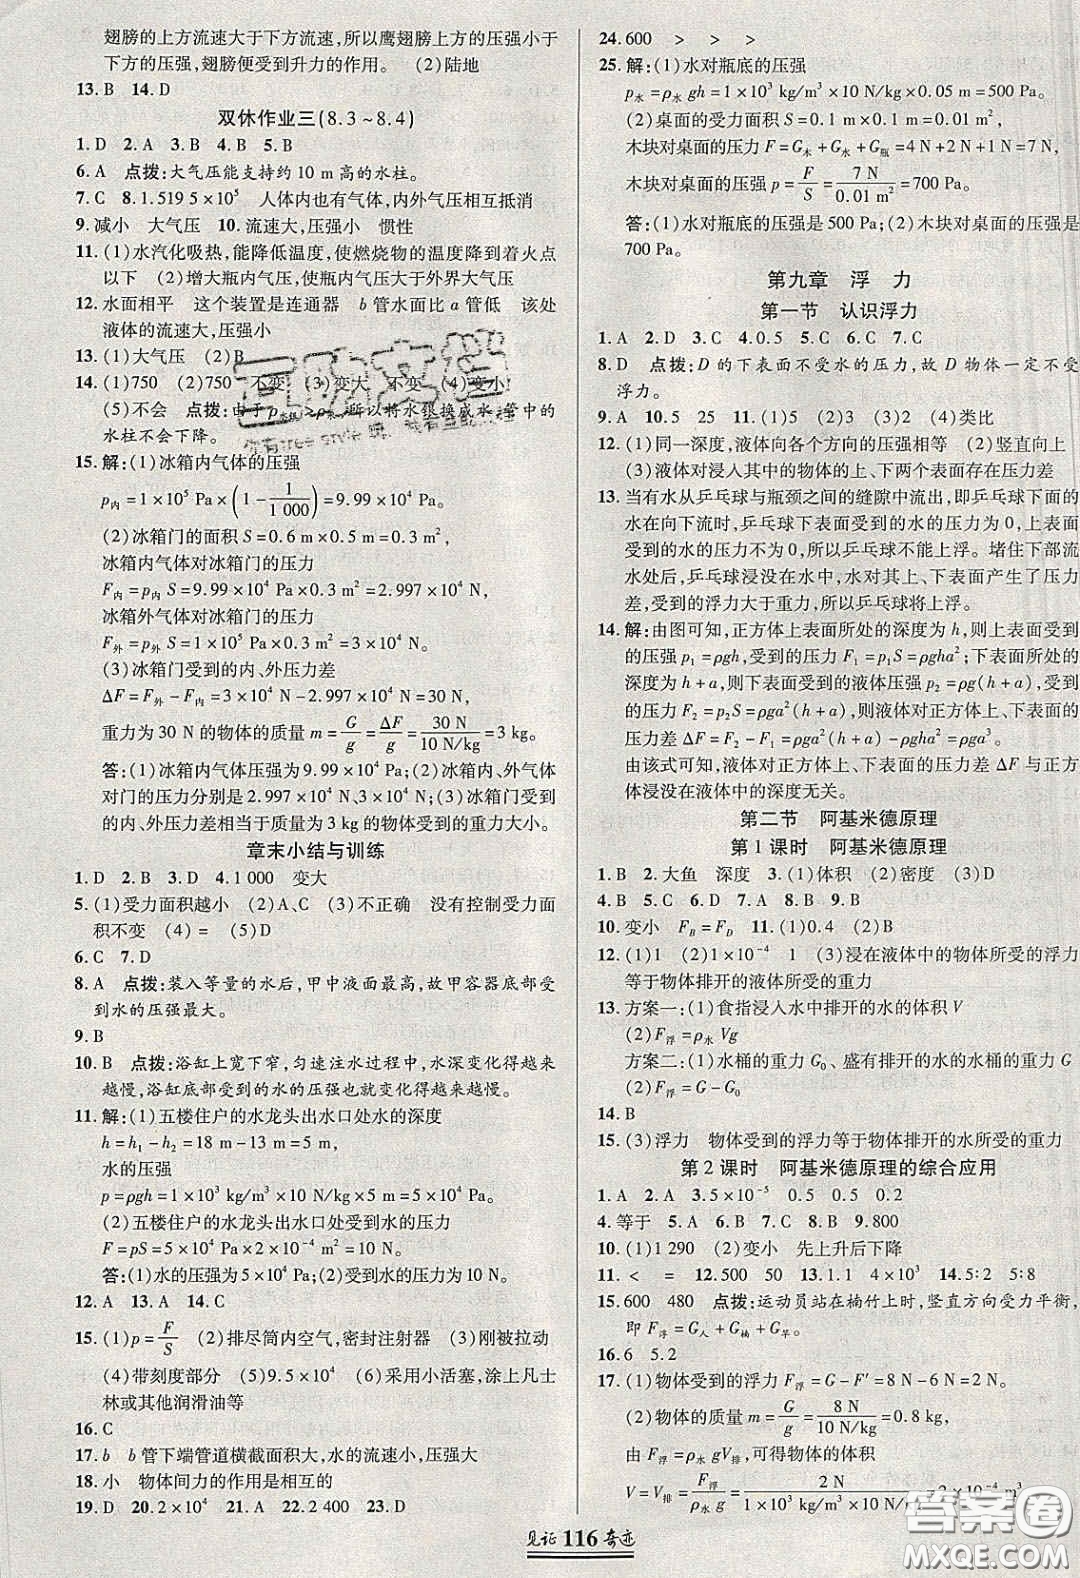 翅膀的上方流速大于下方流速,所以鹰翅膀上方的压强小于
下方的压强,翅膀便受到升力的作用。 (2)陆地
13. B 14. D
双休作业三(8.3~8.4)
1. D 2. A 3. B 4. B 5. B
6. A 点拨:大气压能支持约 10 m 高的水柱。
7. C 8. 1.519 5×10⁵ 人体内也有气体,内外气压相抵消
9. 减小 大气压 10. 流速大,压强小 惯性
11. (1)水汽化吸热,能降低温度,使燃烧物的温度降到着火点
以下 (2)增大瓶内气压,使瓶内气压大于外界大气压
12. 水面相平 这个装置是连通器 b 管水面比 a 管低 该处
液体的流速大,压强小
13. (1)大气压 (2)B
14. (1)750 (2)750 不变 (3)变大 不变 (4)变小
(5)不会 点拨:由于 ρ水银>ρ水,所以将水银换成水,管中的
水柱不会下降。
15. 解:(1)冰箱内气体的压强
p内=1×10⁵ Pa×(1-1/1 000)=9.99×10⁴ Pa
(2)冰箱门的面积 S=0.6 m×0.5 m=0.3 m²
冰箱内气体对冰箱门的压力
F内=p内 S=9.99×10⁴ Pa×0.3 m²=2.997×10⁴ N
冰箱外气体对冰箱门的压力
F外=p外 S=1×10⁵ Pa×0.3 m²=3×10⁴ N
(3)冰箱门的内、外压力差
ΔF=F外-F内=3×10⁴ N-2.997×10⁴ N=30 N,
重力为 30 N 的物体的质量 m=G/g=ΔF/g=30 N/10 N/kg=3 kg。
答:(1)冰箱内气体压强为 9.99×10⁴ Pa;(2)冰箱内、外气体
对门的压力分别是 2.997×10⁴ N、3×10⁴ N;(3)冰箱门受到
的内、外压力差相当于质量为 3 kg 的物体受到的重力大小。
章末小结与训练
1. D 2. B 3. D 4. 1 000 变大
5. (1)受力面积越小 (2)A、C (3)不正确 没有控制受力面
积不变 (4)= (5)D
6. C 7. D
8. A 点拨:装入等量的水后,甲中液体最高,故甲容器底部受
到水的压强最大。
9. B
10. B 点拨:浴缸上宽下窄,匀速注水过程中,水深变化得越来
越慢,浴缸底部受到的水的压强也就变化得越来越慢。
11. 解:(1)五楼住户的水龙头出水口处水的深度
h=h₁-h₂=18 m-13 m=5 m,
水的压强
p=ρgh=1×10³ kg/m³×10 N/kg×5 m=5×10⁴ Pa
(2)五楼住户的水龙头出水口处受到水的压力
F=pS=5×10⁴ Pa×2×10⁻⁴ m²=10 N。
答:(1)水的压强为 5×10⁴ Pa;(2)受到水的压力为 10 N。
12. A 13. A 14. C
15. (1)p=F/S (2)排尽筒内空气,密封注射器 (3)刚被拉动
(4)带刻度部分 (5)9.5×10⁴ (6)采用小活塞,涂上凡士
林或其他润滑油等
16. C
17. b b 管下端管道横截面积大,水的流速小,压强大
18. 小 物体间力的作用是相互的
19. D 20. 2×10⁴ 21. A 22. 2 400 23. D
24. 600 > > >
25. 解:(1)水对瓶底的压强
p水=ρ水 gh=1×10³ kg/m³×10 N/kg×0.05 m=500 Pa。
(2)桌面的受力面积 S=0.1 m×0.1 m=0.01 m²
木块对桌面的压力 F=G木+G水+G瓶=4 N+2 N+1 N=7 N,
木块对桌面的压强 p=F/S=7 N/0.01 m²=700 Pa。
答:(1)水对瓶底的压强是 500 Pa;(2)木块对桌面的压强是
700 Pa。
第九章 浮 力
第一节 认识浮力
1. A 2. D 3. C 4. 0.5 5. C 6. C 7. C
8. D 点拨:D 的下表面不受水的压力,故 D 物体一定不受
浮力。
9. A 10. 5 25 11. (1)5 (2)3 (3)2 (4)类比
12. (1)同一深度,液体向各个方向的压强相等 (2)竖直向上
(3)液体对浸入其中的物体的上、下两个表面存在压力差
13. 当有水从乒乓球与瓶颈之间的缝隙中流出,即乒乓球下面的
水在向下流时,乒乓球下表面受到的水的压力为 0,上表面
受到的水的压力不为 0,所以乒乓球不能上浮。堵住下部流
水处后,乒乓球浸没在水中,对其上、下表面产生了压力
差,受到的浮力大于重力,所以乒乓球将上浮。
14. 解:由图可知,正方体上表面所处的深度为 h,则上表面受到
的压强 p₁=ρgh,受到的压力 F₁=p₁S=ρgha²;下表面所处的
深度为(h+a),则下表面受到的液体压强 p₂=ρg(h+a),受到
的压力 F₂=p₂S=ρga²(h+a),则液体对正方体上、下表面的
压力差 ΔF=F₂-F₁=ρga²(h+a)-ρgha²=ρga³。
由该式可知,液体对正方体上、下表面的压力差 ΔF 与正方
体浸没在液体中的深度无关。
第二节 阿基米德原理
第 1 课时 阿基米德原理
1. B 2. 大鱼 深度 3. (1)体积 (2)密度 (3)D
4. B 5. C 6. D 7. A 8. B 9. B
10. 变小 F_B=F_D 11. (1)0.4 (2)B
12. (1)1 (2)1×10⁻⁴ 1 (3)浸在液体中的物体所受的浮力
等于物体排开的液体所受的重力
13. 方案一:(1)食指浸入水中排开的水的体积 V
(2)F浮=ρ水 Vg
方案二:(1)水桶的重力 G₀、盛有排开的水的水桶的重力 G
(2)F浮=G-G₀
14. B
15. (3)浮力 物体受到的浮力等于物体排开的水所受的重力
第 2 课时 阿基米德原理的综合应用
1. A 2. A 3. 5×10⁻⁵ 0.5 0.5
4. 等于 5. A 6. B 7. C 8. B 9. 800
10. (1)1 290 (2)变小 先上升后下降
11. < = 12. 500 50 13. 1.1 4×10³ 14. 5∶2 5∶8
15. 600 480 点拨:运动员站在楠竹上时,竖直方向受力平衡,
即 F浮=G人+G楠+G竿。
16. 6 5.2
17. (1)物体受到的浮力 F浮=G-F′=8 N-6 N=2 N。
(2)物体的质量 m=G/g=8 N/10 N/kg=0.8 kg,
由 F浮=ρ水 gV排,可得物体的体积
V=V排=F浮/ρ水 g=2 N/1×10³ kg/m³×10 N/kg=2×10⁻⁴ m³
见证 116 奇迹
答案圈
MXQE.COM